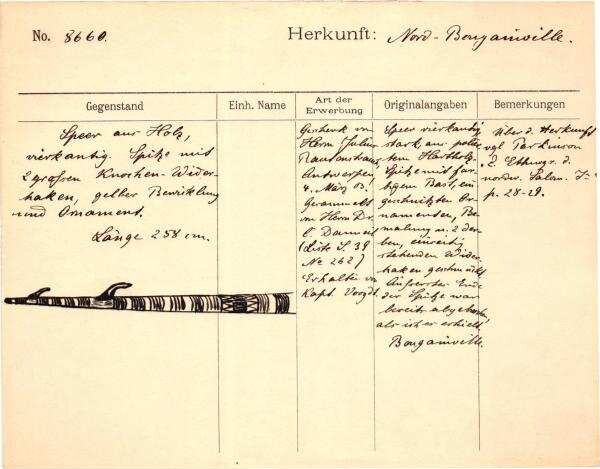 No. 8660.
Herkunft: Nord-Bougainville.
Gegenstand
Einh. Name
Art der
Erwerbung
Originalangaben
Bemerkungen
Speer aus Holz,
vierkantig. Spitze mit
2 großen Knochen-Wider-
haken, gelber Bewicklung
und Ornament.
Länge 258 cm.
Geschenk von
Herrn Julius
Antwerpen
4. März 03.
Gesammelt
von Herrn Dr.
(Liste S. 39
No 262)
Erhalten von
Kapt. Voogdt.
Speer vierkantig
stark aus
Hartholz.
Spitze mit far-
bigem Bast, ein
geschnitzten Or-
namenten, Be-
malung u. 2 der-
ben, einseitig
stehenden Wider-
haken geschmückt.
Äusserstes Ende
der Spitze war
bereits abgebrochen,
als ich er erhielt.
Bougainville.
Über d. Herkunft
vgl. Parkinson
Z. Ethnogr. d.
nordw. Salom. I.
p. 28-29.